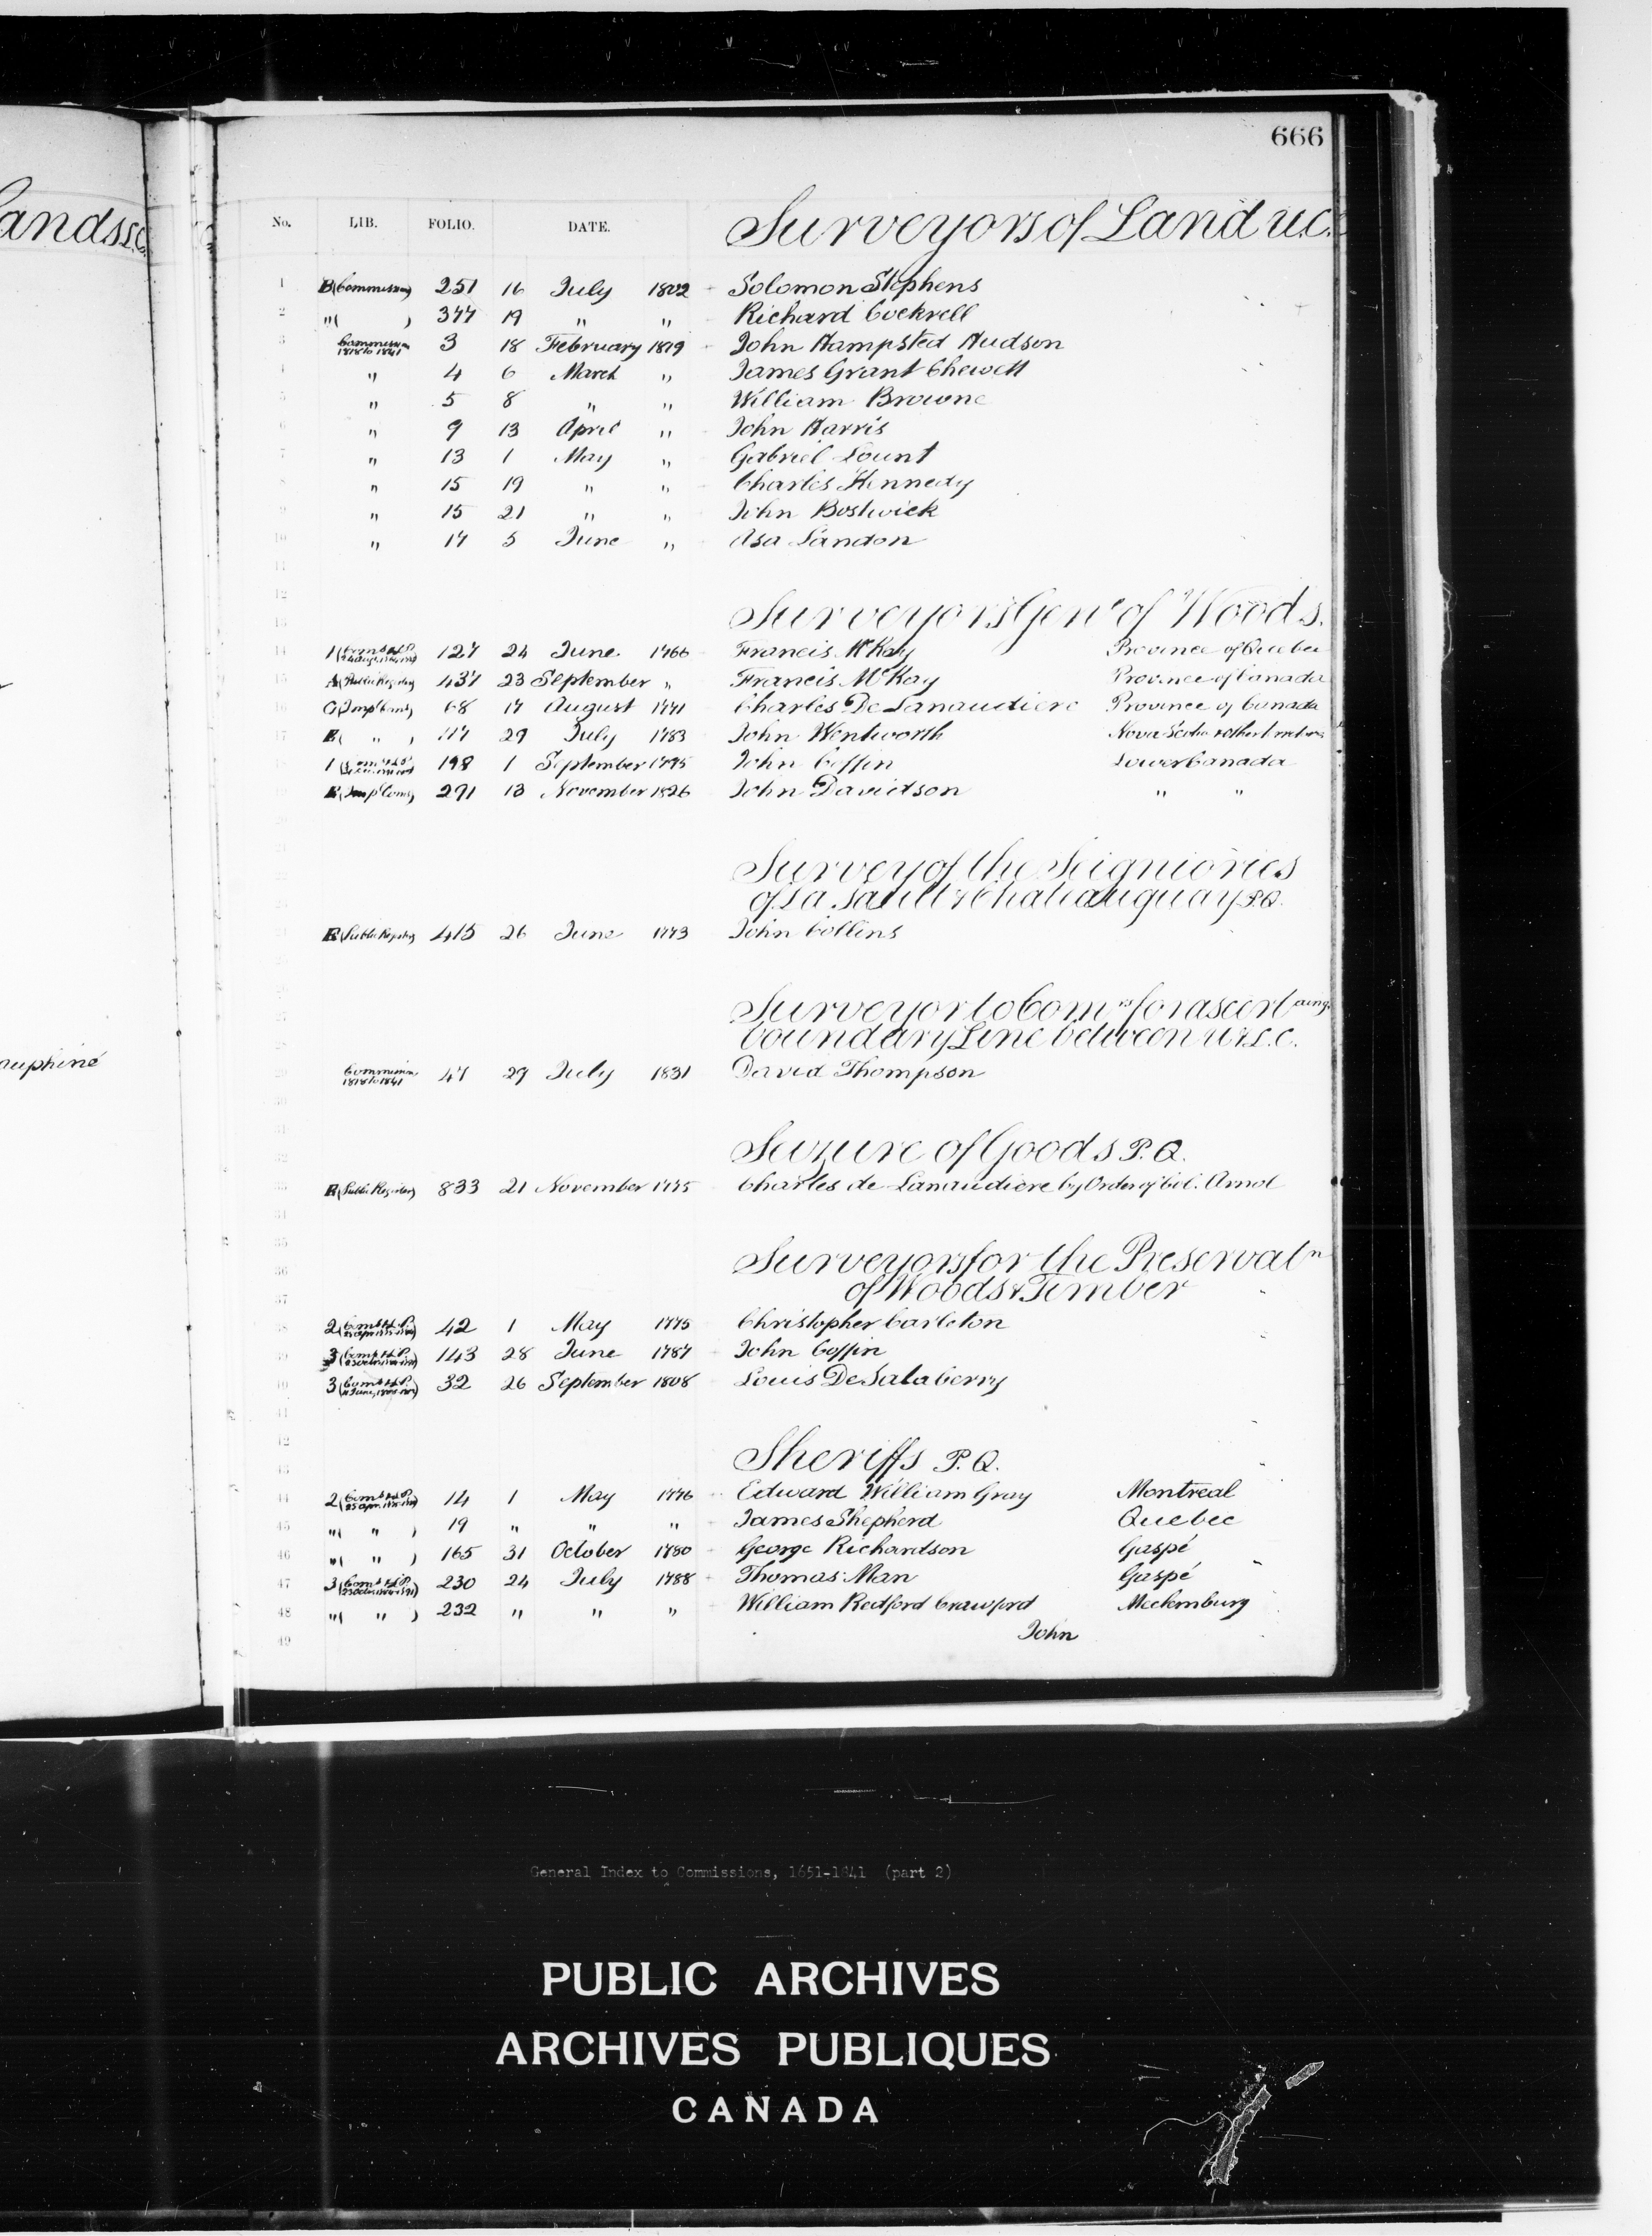 666
andss.
No. LIB. FOLIO. DATE. Surveyors of Land U.C.
1 B (Commissions) 251 16 July 1802 Solomon Stephens
2 " ( ) 377 19 " " Richard Cockrell
3 Commission 1818 to 1841 3 18 February 1819 John Hampsted Hudson
4 " 4 6 March " James Grant Chewett
5 " 5 8 " " William Browne
6 " 9 13 April " John Harris
7 " 13 1 May " Gabriel Lount
8 " 15 19 " " Charles Kennedy
9 " 15 21 " " John Bostwick
10 " 17 5 June " Asa Landon
11
12
13 Surveyors Genl of Woods.
14 1 127 24 June 1766 Francis McKay Province of Quebec
15 A (Public Register) 437 23 September " Francis McKay Province of Canada
16 G (Imp Coms) 68 17 August 1771 Charles De Lanaudiere Province of Canada
17 E ( " ) 117 29 July 1783 John Wentworth Nova Scotia & other
18 1 198 1 September 1795 John Coffin Lower Canada
19 K (Imp Coms) 291 13 November 1826 John Davidson " "
20
21
22 Survey of the Seigniories
23 of La Sault & Chateauguay P.Q.
24 E (Public Register) 415 26 June 1773 John Collins
25
26
27 Surveyor to Comrs for ascertaing
28 boundary Line between U & L.C.
29 Commission 1818 to 1841 47 29 July 1831 David Thompson
auphiné
30
31
32 Seizure of Goods P.Q.
33 E (Public Register) 833 21 November 1775 Charles de Lanaudiere by Order of Col. Arnol
34
35
36 Surveyors for the Preservatn
37 of Woods & Timber
38 2 42 1 May 1775 Christopher Carleton
39 3 143 28 June 1787 John Coffin
40 3 32 26 September 1808 Louis De Salaberry
41
42
43 Sheriffs P.Q.
44 2 14 1 May 1776 Edward William Gray Montreal
45 " ( " ) 19 " " " James Shepherd Quebec
46 " ( " ) 165 31 October 1780 George Richardson Gaspé
47 3 230 24 July 1788 Thomas Man Gaspé
48 " ( " ) 232 " " " William Redford Crawford Mecklemburg
49 John
General Index to Commissions, 1651-1841 (part 2)
PUBLIC ARCHIVES
ARCHIVES PUBLIQUES
CANADA